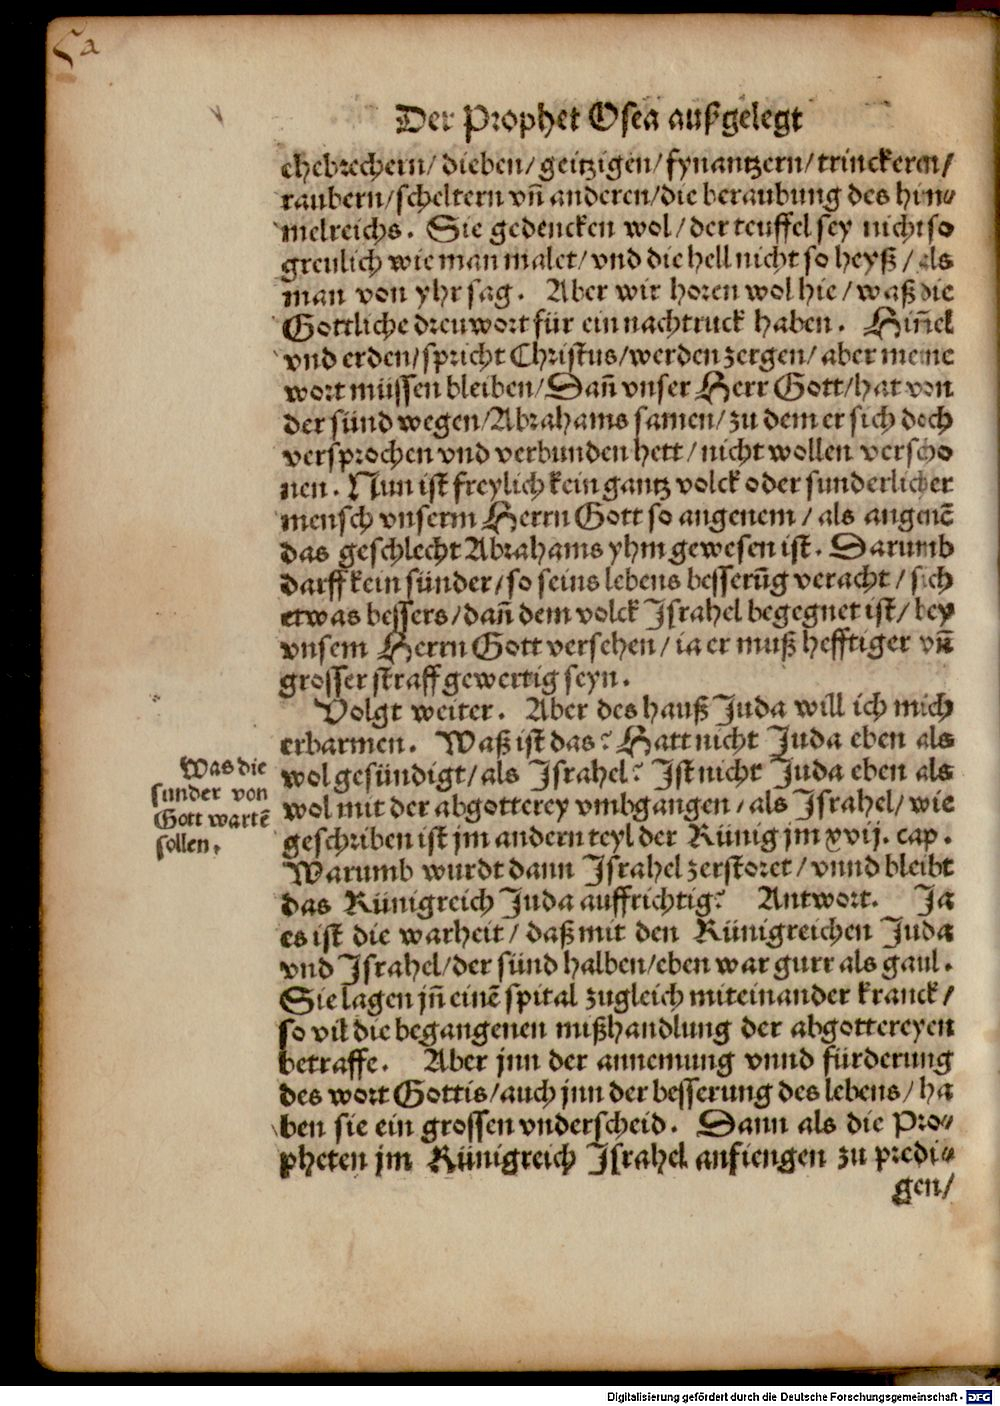 5a
Der Prophet Osea außgelegt
ehebrechern/ dieben/ geitzigen/ fynantzern/ trinckeren/
raubern/ scheltern vn̄ anderen/ die beraubung des him-
melreichs. Sie gedencken wol/ der teuffel sey nicht so
greulich wie man malet/ vnd die hell nicht so heyß/ als
man von yhr sag. Aber wir horen wol hie/ waß die
Gottliche dreuwort für ein nachtruck haben. Him̄el
vnd erden/ spricht Christus/ werden zergen/ aber meine
wort müssen bleiben/ Dan̄ vnser Herr Gott/ hat von
der sünd wegen/ Abrahams samen/ zu dem er sich doch
versprochen vnd verbunden hett/ nicht wollen verscho
nen. Nun ist freylich kein gantz volck oder sunderlicher
mensch vnserm Herrn Gott so angenem/ als angenē
das geschlecht Abrahams yhm gewesen ist. Darumb
darff kein sünder/ so seins lebens besserūg veracht/ sich
etwas bessers/ dan̄ dem volck Israhel begegnet ist/ bey
vnsem Herrn Gott versehen/ ia er muß hefftiger vn̄
grosser straff gewertig seyn.
Volgt weiter. Aber des hauß Juda will ich mich
erbarmen. Waß ist das? Hatt nicht Juda eben als
wol gesündigt/ als Israhel? Ist nicht Juda eben als
wol mit der abgotterey vmbgangen/ als Israhel/ wie
geschriben ist jm andern teyl der Künig jm xvij. cap.
Warumb wurdt dann Israhel zerstoret/ vnnd bleibt
das Künigreich Juda auffrichtig? Antwort. Ja
es ist die warheit/ daß mit den Künigreichen Juda
vnd Israhel/ der sünd halben/ eben war gurr als gaul.
Sie lagen jn̄ einē spital zugleich miteinander kranck/
so vil die begangenen mißhandlung der abgottereyen
betraffe. Aber jnn der annemung vnnd fürderung
des wort Gottis/ auch jnn der besserung des lebens/ ha
ben sie ein grossen vnderscheid. Dann als die Pro-
pheten jm Künigreich Israhel anfiengen zu predi-
gen/
Was die
sunder von
Gott wartē
sollen.
Digitalisierung gefördert durch die Deutsche Forschungsgemeinschaft - DFG